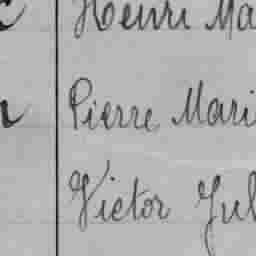 Henri Ma
Pierre Mari
Victor Jul